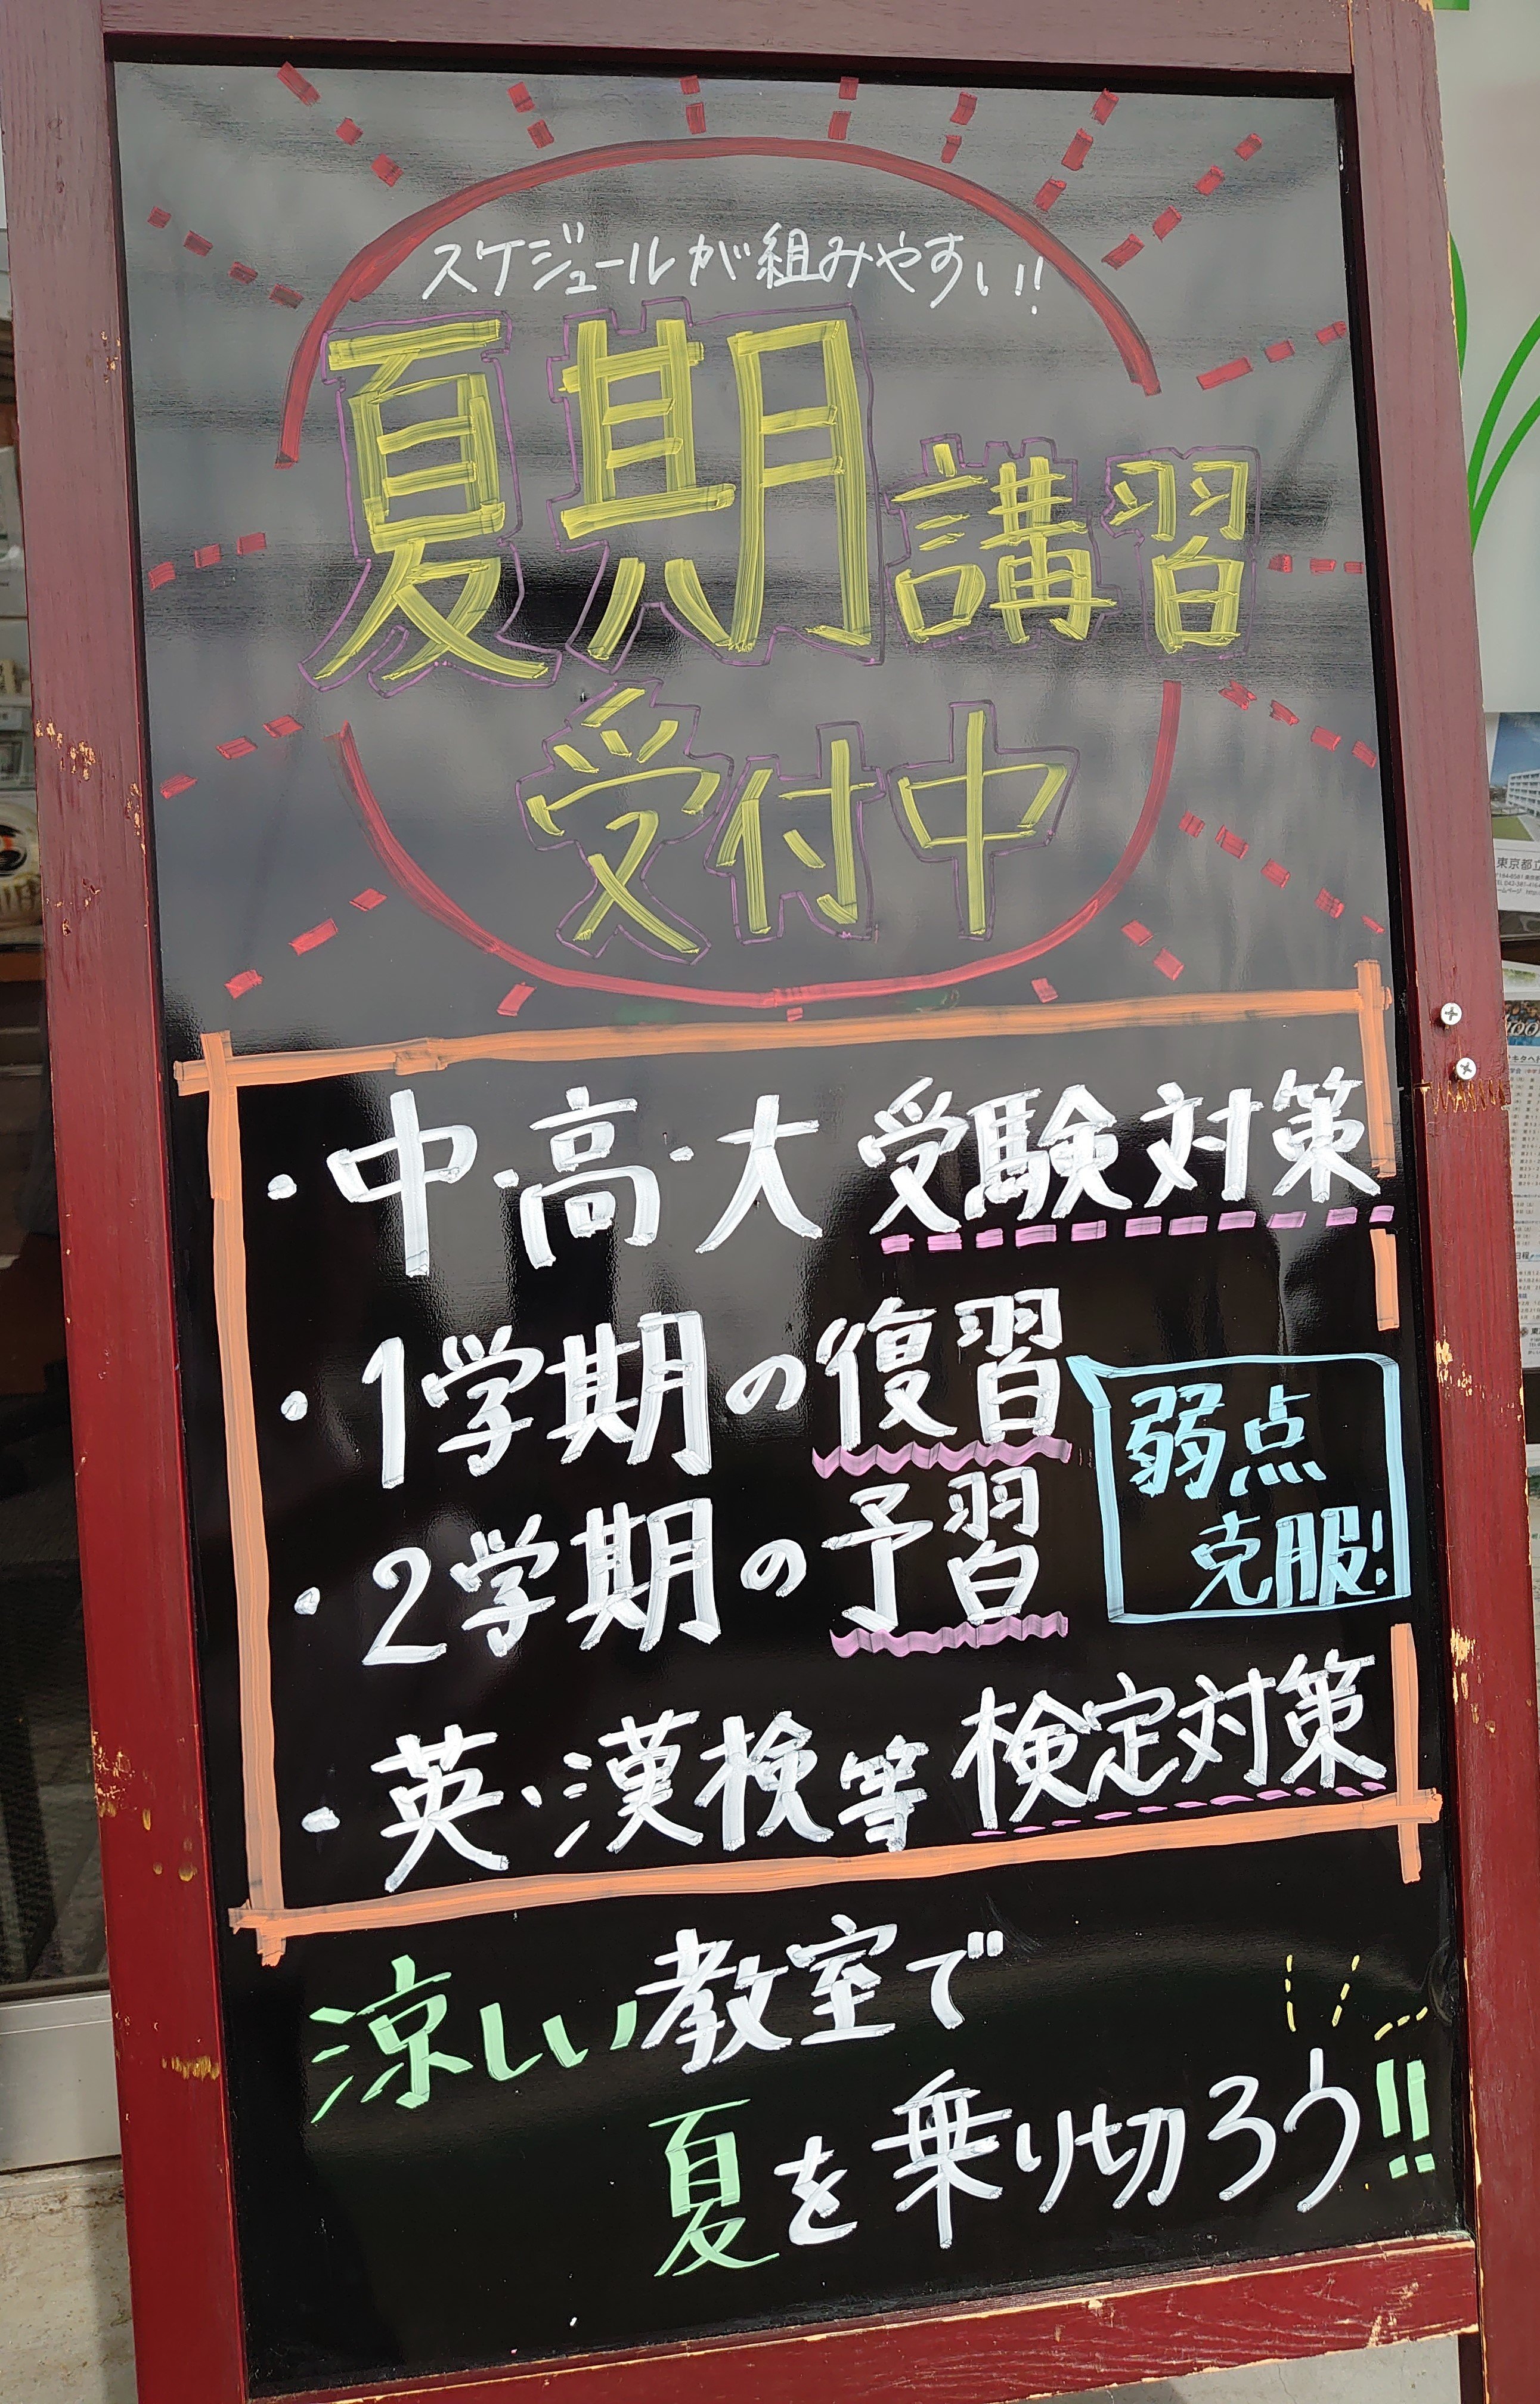 スケジュールが組みやすい!!
夏期講習
受付中
・中・高・大 受験対策
・1学期の復習
・2学期の予習
弱点
克服!
・英・漢検等 検定対策
涼しい教室で
夏を乗り切ろう!!
東京都立